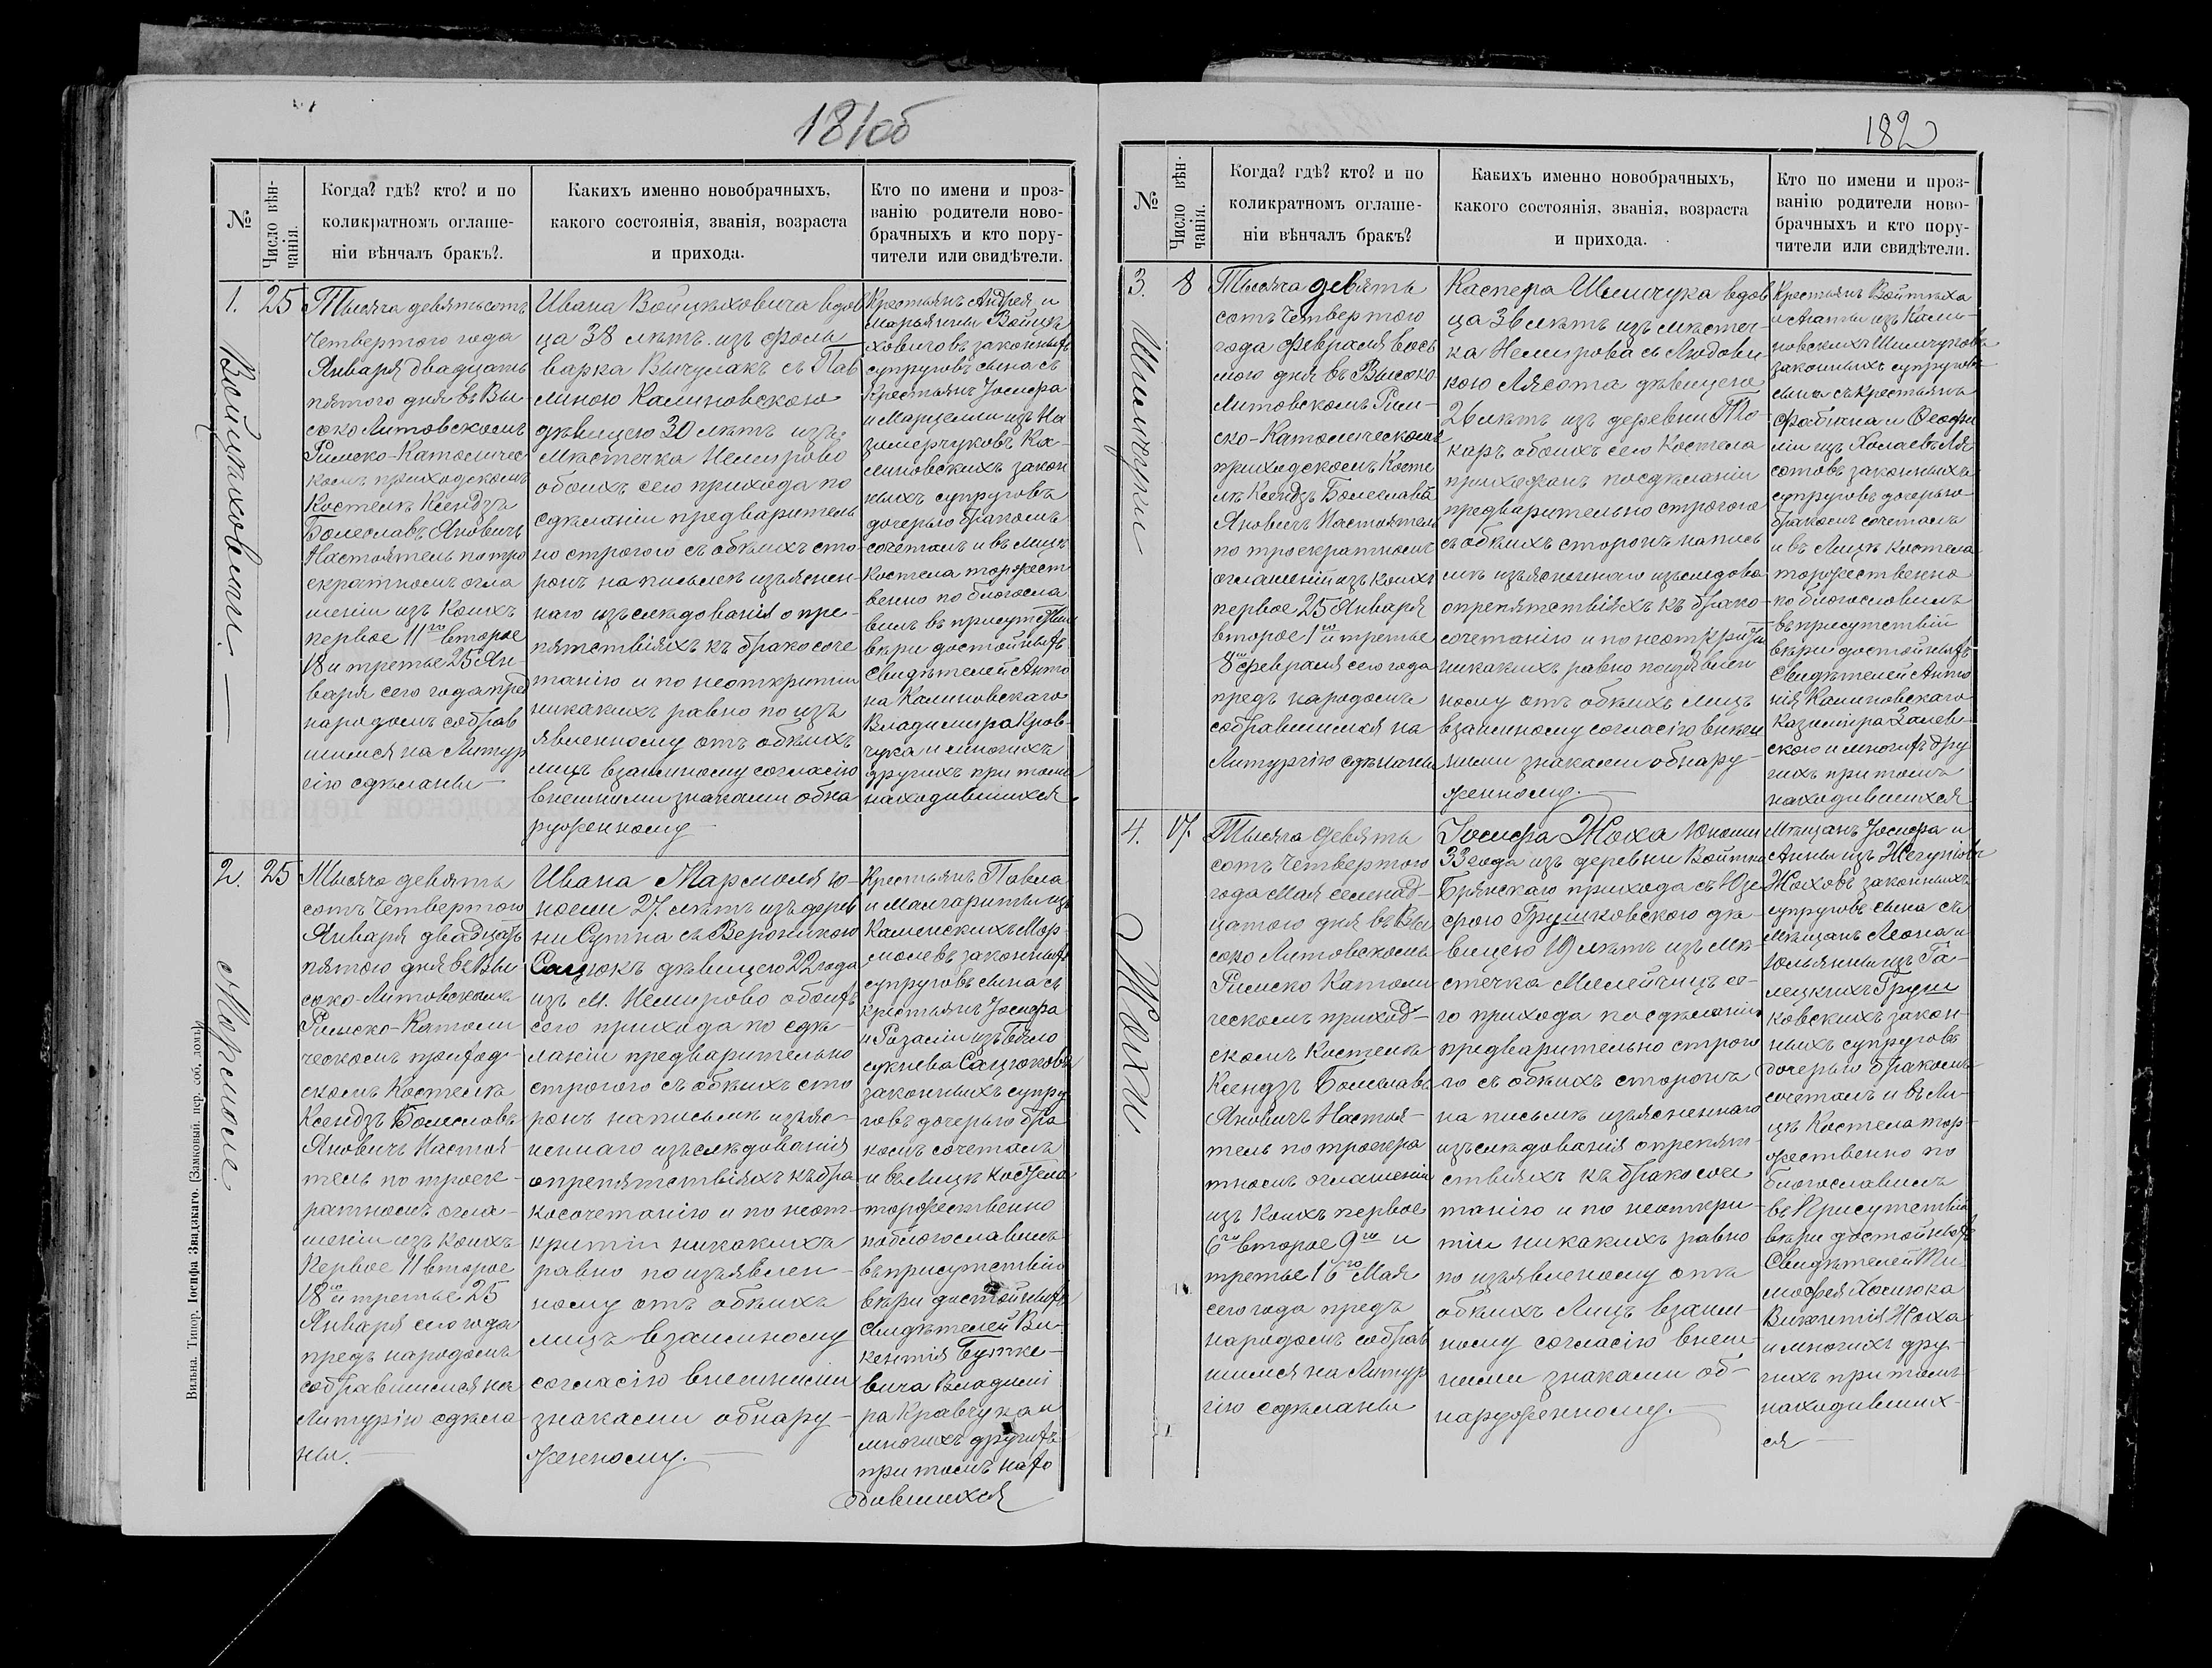 181об
№
Число вѣн-
чанія.
Когда? гдѣ? кто? и по
коликратномъ оглаше-
ніи вѣнчалъ бракъ?.
Какихъ именно новобрачныхъ,
какого состоянія, званія, возраста
и прихода.
Кто по имени и проз-
ванію родители ново-
брачныхъ и кто пору-
чители или свидѣтели.
1.
25
Войцѣховичи
Тысяча девятьсотъ
Четвертого года
Января двадцать
пятого дня въ Вы
соко Литовскомъ
Римско-Католичес
комъ приходскомъ
Костелѣ Ксендзъ
Болеславъ Яновичъ
Настоятель по тро
екратномъ огла
шеніи изъ коихъ
первое 11го второе
18 и третье 25 Ян-
варя сего года пред
народомъ собрав
шимся на Литур
гію сдѣланы
Ивана Войцѣховича вдов
ца 38 лѣтъ изъ фоль
варка Вычулакъ съ Пав
линою Калиновскою
дѣвицею 30 лѣтъ изъ
мѣстечка Немирово
обоихъ сего прихода по
сдѣланіи предваритель
но строгого съ обѣихъ сто
ронъ на письмѣ изъяснен-
наго изъслѣдованія о пре-
пятствіяхъ къ бракосоче
танію и по неоткрытіи
никакихъ равно по изъ
явленному отъ обѣихъ
лицъ взаимному согласію
внешними знаками обна
руженному
Крестьянъ Андрея и
Марьянны Войцѣ
ховичовъ законныхъ
супруговъ сына съ
Крестьянъ Іосифа
и Марцелли изъ Ка
зимерчуковъ Ка-
линовскихъ закон
ныхъ супруговъ
дочерью бракомъ
сочеталъ и въ лицѣ
Костела торжест
венно по благосла
вилъ въ присутствіи
вѣри достойныхъ
Свидѣтелей Анто
на Калиновскаго
Владимира Кров-
чука и многихъ
другихъ при томъ
находившихся
2.
25
Мармоле
Тысяча девять
сотъ Четвертого
Января двадцать
пятого дня въ Вы
соко-Литовскомъ
Римско-Католи
ческомъ приход-
скомъ Костелѣ
Ксендзъ Болеславъ
Яновичъ Настоя-
тель по троек-
ратномъ огла-
шеніи изъ коихъ
Первое 11 второе
18го и третье 25
Января сего года
предъ народомъ
собравшимся на
Литургію сдѣла
ны.
Ивана Мармоля ю-
ноши 27 лѣтъ изъ дерев
ни Сутна съ Вероникою
Сацюкъ дѣвицею 22 года
изъ М. Немирово обоихъ
сего прихода по сдѣ-
ланіи предварительно
строгого съ обѣихъ сто
ронъ на письмѣ изъяс-
неннаго изъслѣдованія
о препятствіяхъ къ бра
косочетанію и по неот-
крытіи никакихъ
равно по изъявлен-
ному отъ обѣихъ
лицъ взаимному
согласію внешними
знаками обнару-
женному.
Крестьянъ Павла
и Малгариты изъ
Каменскихъ Мор-
молевъ законныхъ
супруговъ сына съ
крестьянъ Іосифа
и Розаліи изъ
Сацюковъ
законныхъ супру
говъ дочерью бра
комъ сочеталъ
и въ Лицѣ Костела
торжественно
поблагославилъ
въ присутствіи
вѣри достойныхъ
Свидѣтелей Ви-
кентія Бутке-
вича Владими
ра Кравчука и
многихъ другихъ
при томъ нахо
дившихся
Вильна. Типор. Іосифа Звадзкаго. (Замковый. пер. соб. домъ)
182
№
Число вѣн-
чанія.
Когда? гдѣ? кто? и по
коликратномъ оглаше-
ніи вѣнчалъ бракъ?
Какихъ именно новобрачныхъ,
какого состоянія, званія, возраста
и прихода.
Кто по имени и проз-
ванію родители ново-
брачныхъ и кто пору-
чители или свидѣтели.
3.
8
Шимчуки
Тысяча девять
сотъ Четвертого
года февраля вось
мого дня въ Высоко
Литовскомъ Рим-
ско-Католическомъ
приходскомъ Косте
лѣ Ксендзъ Болеславъ
Яновичъ Настоятель
по троекратномъ
оглашеніи изъ коихъ
первое 25 Января
второе 1го и третье
8го февраля сего года
предъ народомъ
собравшимся на
Литургію сдѣланы
Каспера Шимчука вдов
ца 36 лѣтъ изъ мѣстеч-
ка Немирова съ Людови
кою Лясота дѣвицею
26 лѣтъ изъ деревни То
каръ обоихъ сего Костела
прихожанъ по сдѣланіи
предварительно строгого
съ обѣихъ сторонъ на пись
мѣ изъясненнаго изъслѣдова
о препятствіяхъ къ брако-
сочетанію и по неоткрытіи
никакихъ равно по изъявлен
ному отъ обѣихъ лицъ
взаимному согласію внеш
ними знаками обнару-
женному.
Крестьянъ Войтѣха
и Агаты изъ Кали-
новскихъ Шимчуковъ
законныхъ супруговъ
сына съ Крестьянъ
Фабіяна и Теофи
ліи изъ Ля-
сотовъ законныхъ
супруговъ дочерью
бракомъ сочеталъ
и въ Лицѣ Костела
торжественно
по благословилъ
въ присутствіи
вѣри достойныхъ
Свидѣтелей Анто
нія Калиновскаго
Казимира Залев-
ского и многихъ дру
гихъ при томъ
находившихся
4.
17.
Жохи
Тысяча девять
сотъ Четвертого
года Мая семнад-
цатого дня въ Вы
соко Литовскомъ
Римско Католи
ческомъ приход-
скомъ Костелѣ
Ксендзъ Болеславъ
Яновичъ Настоя-
тель по троекра
тномъ оглашеніи
изъ Коихъ первое
6го второе 9го и
третье 16го Мая
сего года предъ
народомъ собрав
шимся на Литур
гію сдѣланы
Іосифа Жоха Юноши
33 года изъ деревни Войтки
Брянскаго прихода съ Юзе
фою Грушковскою дѣ-
вицею 19 лѣтъ изъ мѣ-
стечка Милейчицъ се-
го прихода по сдѣланіи
предварительно строго
го съ обѣихъ сторонъ
на письмѣ изъясненнаго
изъслѣдованія о препят-
ствіяхъ къ бракосоче
танію и по неоткры-
тіи никакихъ равно
по изъявленому отъ
обѣихъ Лицъ взаим-
ному согласію внеш-
ними знаками об-
наруженному.
Мѣщанъ Іосифа и
Анны изъ
Жоховъ законныхъ
супруговъ сына съ
Мѣщанъ Леона и
Юльянны изъ Га-
лецкихъ Груш
ковскихъ закон-
ныхъ супруговъ
дочерью бракомъ
сочеталъ и въ Ли-
цѣ Костела тор-
жественно по
благославилъ
въ Присутствіи
вѣри достойныхъ
Свидѣтелей Ти-
мофея Хомюка
Викентія Жоха
и многихъ дру-
гихъ при томъ
находивших-
ся